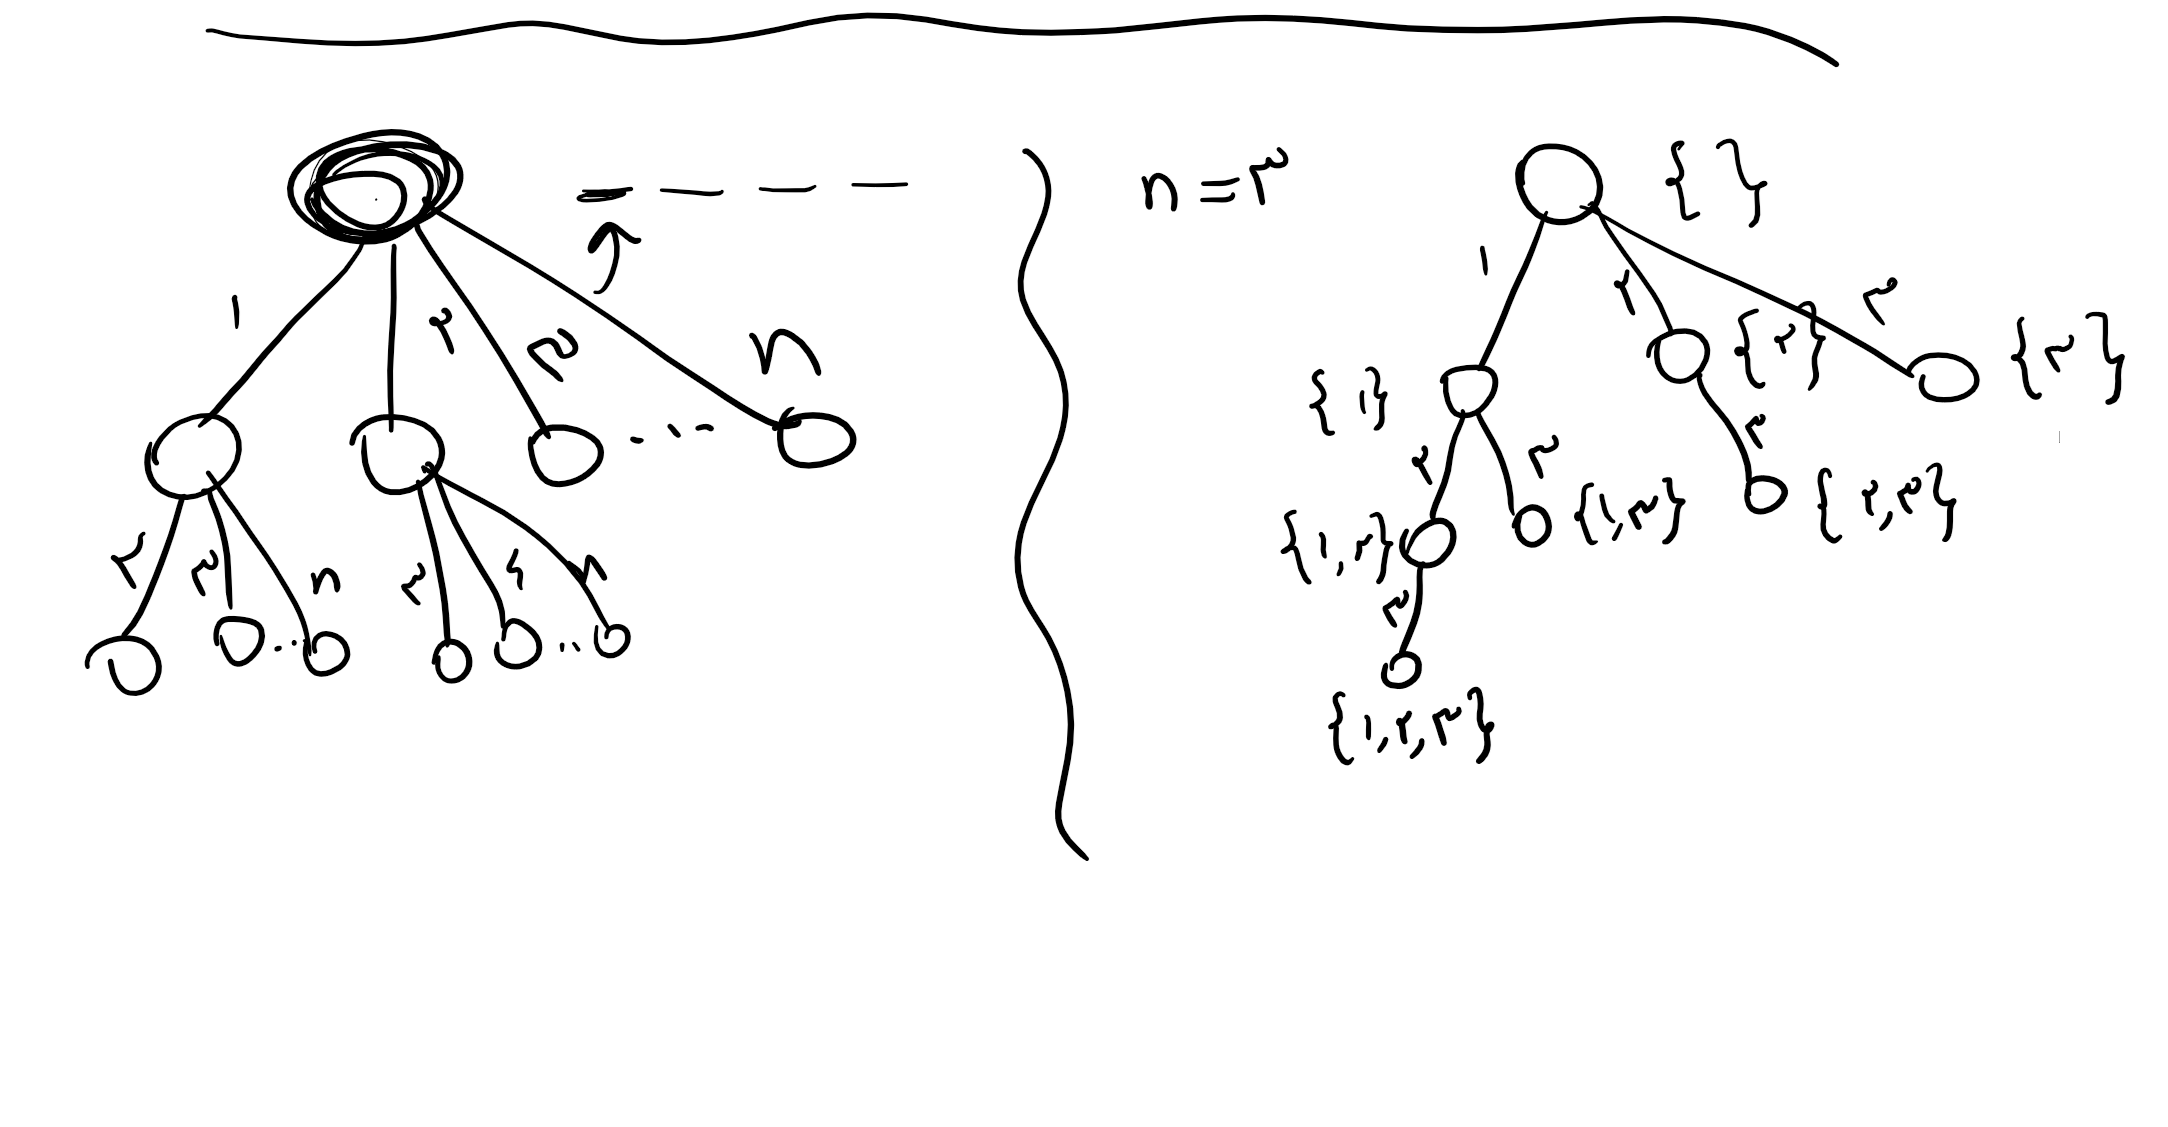 ۱ ۲ ۳ ... n
۲ ۳ ... n ۳ ۴ ... n
n = ۳
{ }
۱ ۲ ۳
{ ۱} { ۲} { ۳ }
۲ ۳ ۳
{۱, ۲} {۱, ۳} { ۲, ۳}
۳
{۱, ۲, ۳}